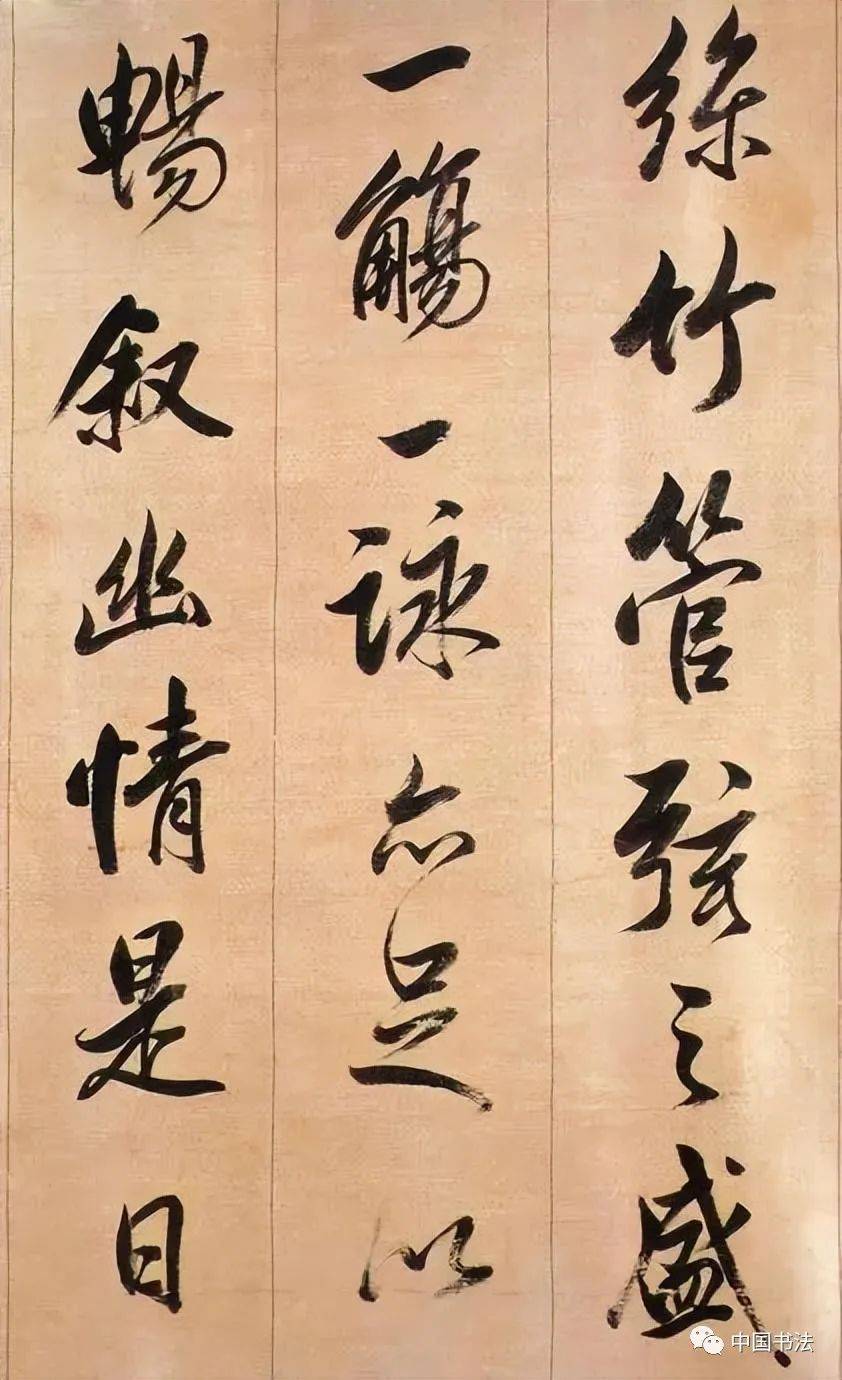 絲竹管弦之盛
一觴一詠亦足以
暢叙幽情是日
中国书法